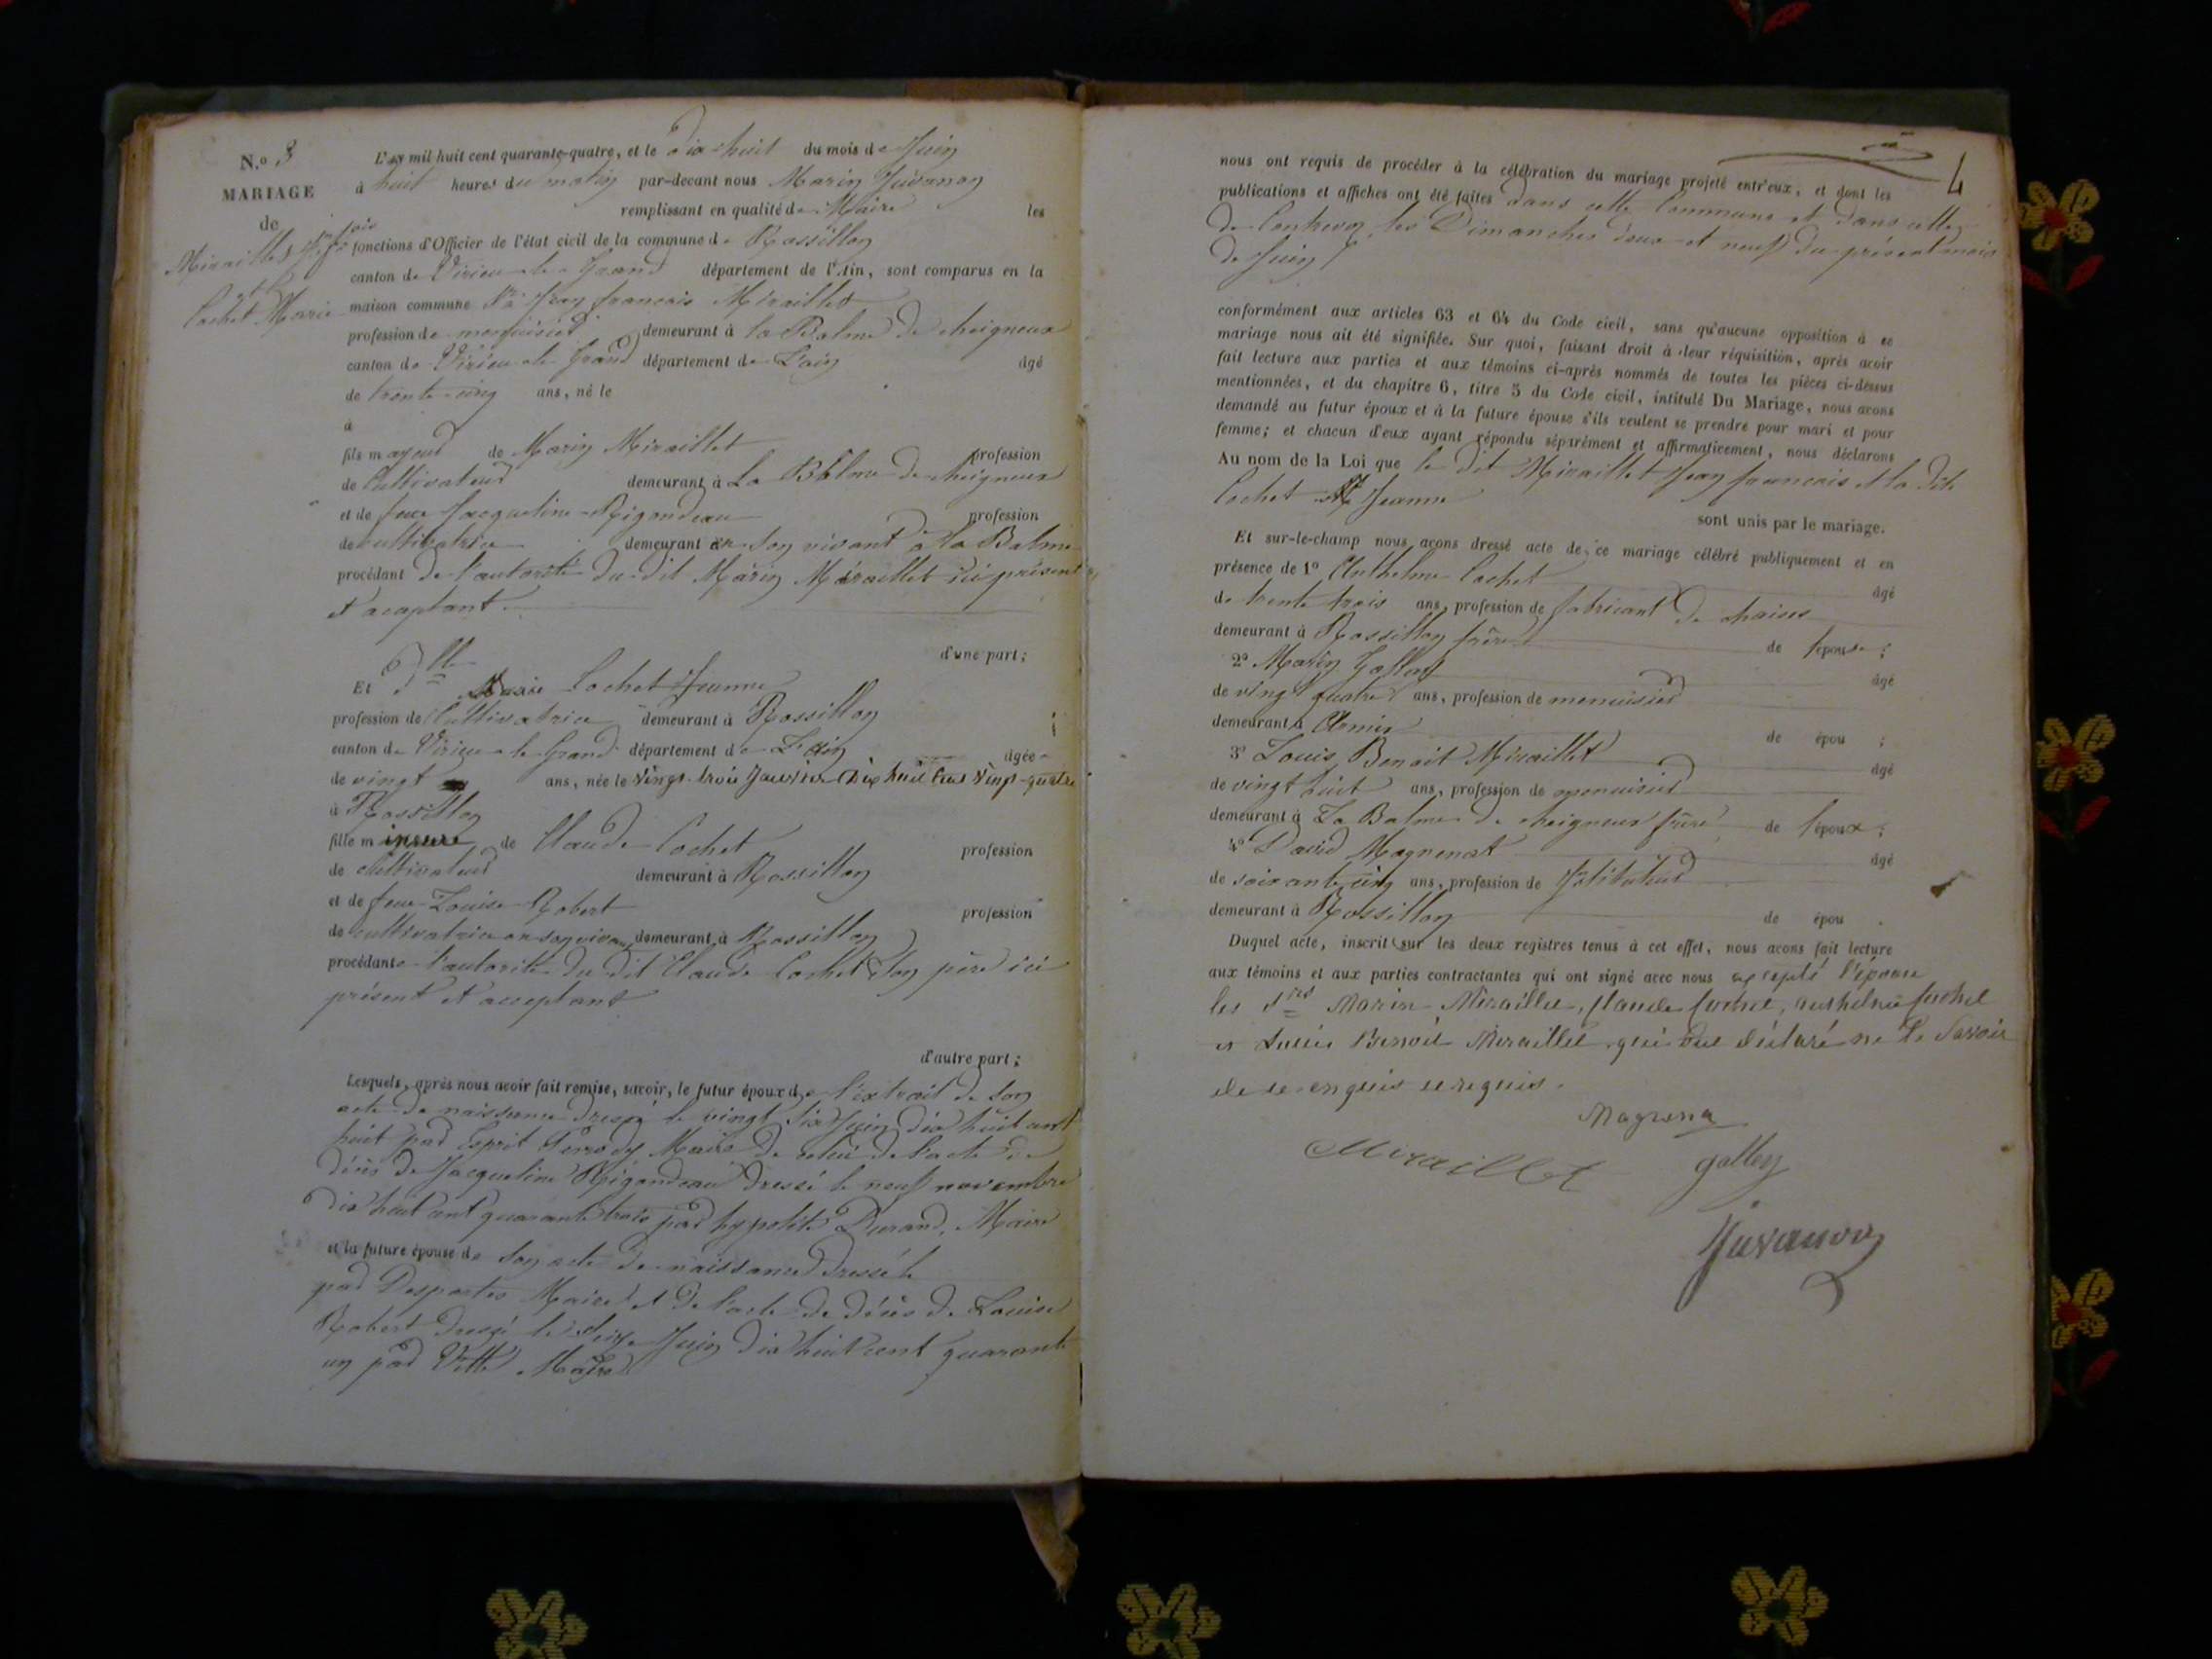 N.o 3
MARIAGE
de
Miraillet Jn fçois
et
Cochet Marie
L'an mil huit cent quarante-quatre, et le dix huit du mois de Juin
à huit heures du matin par-devant nous Marin Juvanon
remplissant en qualité de Maire les
fonctions d'Officier de l'état civil de la commune de Rossillon
canton de Virieu le Grand département de l'Ain, sont comparus en la
maison commune Sr Jean francois Miraillet
profession de menuisier demeurant à la Balme de cheigneux
canton de Virieu le Grand département de L'ain âgé
de trente cinq ans, né le
à
fils mageur de Marin Miraillet profession
de Cultivateur demeurant à La Balme de cheigneux
et de feue Jacqueline Rigondeau profession
de cultivatrice demeurant en son vivant à la Balme
procédant de l'autorité du dit Marin Miraillet ici présent
et acceptant.
d'une part;
Et Dlle Marie Cochet Jeanne
profession de Cultivatrice demeurant à Rossillon
canton de Virieu le Grand département de L'Ain âgée
de vingt ans, née le vingt-trois Janvier Dix huit cent vingt-quatre
à Rossillon
fille mineure de Claude Cochet profession
de cultivateur demeurant à Rossillon
et de feue Louise Robert profession
de cultivatrice en son vivant demeurant à Rossillon
procédante l'autorité du dit Claude Cochet son père ici
présent et acceptant
d'autre part;
Lesquels, après nous avoir fait remise, savoir, le futur époux de l'extrait de son
acte de naissance dressé le vingt six Juin dix huit cent
huit par Esprit Perrody Maire de celui de l'acte de
décès de Jacqueline Rigondeau dressé le neuf novembre
dix huit cent quarante trois par hypolite Durand, Maire
et la future épouse de son acte de naissance dressé le
par Desportes Maire et de l'acte de décès de Louise
Robert dressé le seize Juin dix huit cent quarante
un par Vette Maire
4
nous ont requis de procéder à la célébration du mariage projeté entr'eux, et dont les
publications et affiches ont été faites dans cette Commune et dans celle
de Contrevoz les Dimanches deux et neuf du présent mois
de Juin
conformément aux articles 63 et 64 du Code civil, sans qu'aucune opposition à ce
mariage nous ait été signifiée. Sur quoi, faisant droit à leur réquisition, après avoir
fait lecture aux parties et aux témoins ci-après nommés de toutes les pièces ci-dessus
mentionnées, et du chapitre 6, titre 5 du Code civil, intitulé Du Mariage, nous avons
demandé au futur époux et à la future épouse s'ils veulent se prendre pour mari et pour
femme; et chacun d'eux ayant répondu séparément et affirmativement, nous déclarons
Au nom de la Loi que le dit Miraillet Jean francois et la dite
Cochet Jeanne
sont unis par le mariage.
Et sur-le-champ nous avons dressé acte de ce mariage célébré publiquement et en
présence de 1o Anthelme Cochet âgé
de trente trois ans, profession de fabricant de chaises
demeurant à Rossillon frère de l'épouse;
2o Marin Gollety âgé
de vingt quatre ans, profession de menuisier
demeurant à Armix de épou ;
3o Louis Benoit Miraillet âgé
de vingt huit ans, profession de menuisier
demeurant à La Balme de cheigneux frère de l'époux;
4o David Magnenat âgé
de soixante cinq ans, profession de Instituteur
demeurant à Rossillon de épou .
Duquel acte, inscrit sur les deux registres tenus à cet effet, nous avons fait lecture
aux témoins et aux parties contractantes qui ont signé avec nous excepté l'épouse
les srs Marin Miraillet, Claude Cochet, Anthelme Cochet
et Louis Benoit Miraillet qui ont déclaré ne le savoir
de ce enquis et requis.
Magnena
Miraillet golley
Juvanon